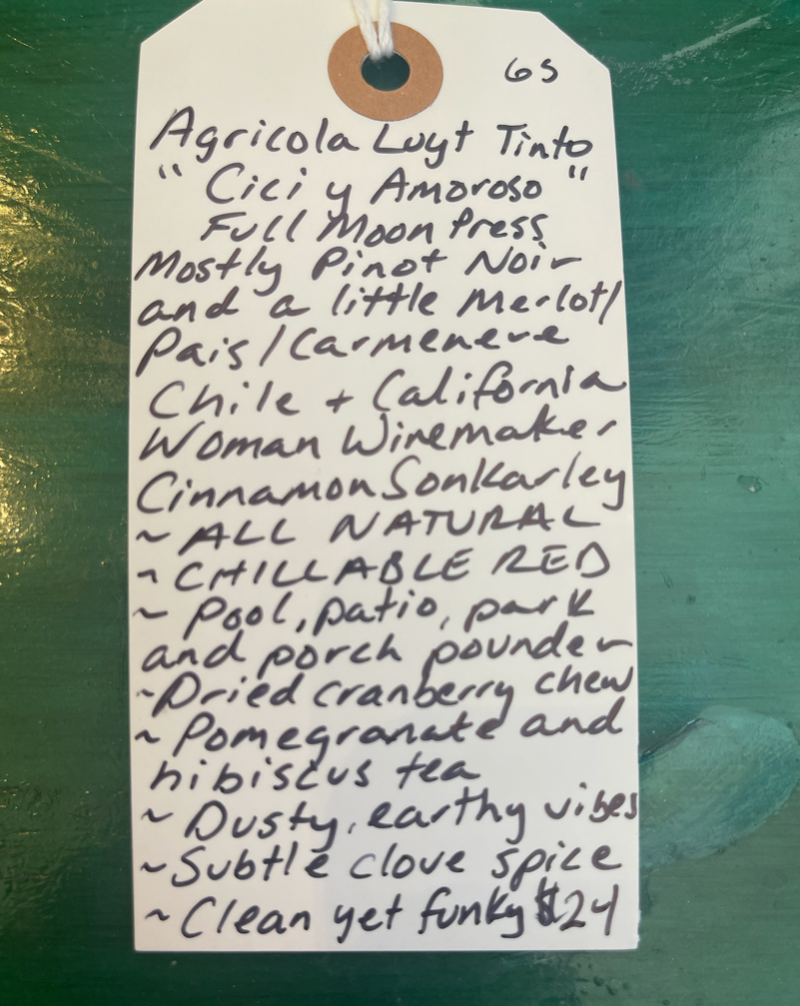 6S
Agricola Luyt Tinto
"Cici y Amoroso"
Full Moon Press
Mostly Pinot Noir
and a little Merlot/
Pais/Carmenere
Chile + California
Woman Winemaker
Cinnamon Sonkarley
~ ALL NATURAL
~ CHILLABLE RED
~ Pool, patio, park
and porch pounder
~Dried cranberry chew
~ Pomegranate and
hibiscus tea
~ Dusty, earthy vibes
~Subtle clove spice
~Clean yet funky $24